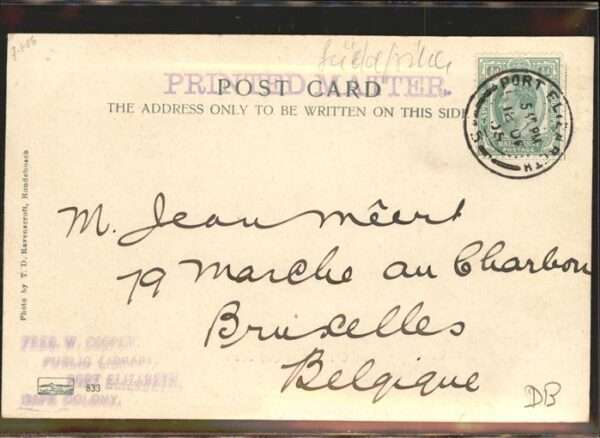 Südafrika
PRINTED MATTER.
POST CARD
THE ADDRESS ONLY TO BE WRITTEN ON THIS SIDE
PORT ELIZABETH
5 PM
POSTAGE
M. Jean Méert
79 Marché au Charbon
Bruxelles
Belgique
Photo by T. D. Ravenscroft, Rondebosch
FRED. W. COOPER,
PUBLIC LIBRARY,
PORT ELIZABETH,
CAPE COLONY.
833
DB